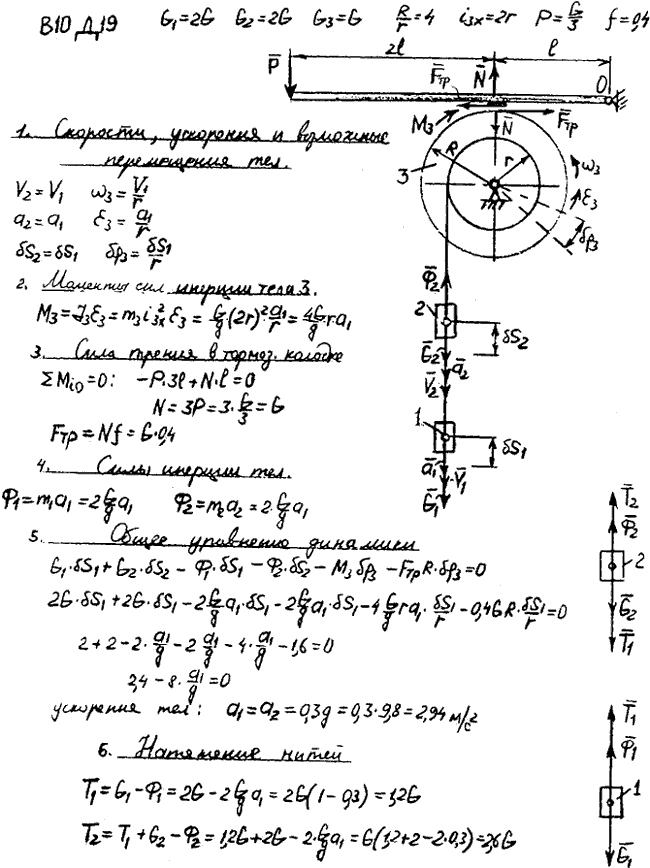 В10 Д19 G₁=2G G₂=2G G₃=G R/r=4 i₃ₓ=2r P=G/3 f=0,4
2l l
P̄ F̄тр N̄ O
M₃ N̄ F̄тр
1. Скорости, ускорения и возможные
перемещения тел.
R r 3 ω₃
V₂=V₁ ω₃=V₁/r
ε₃
a₂=a₁ ε₃=a₁/r
δφ₃
δS₂=δS₁ δφ₃=δS₁/r
Φ̄₂
2. Моменты сил инерции тела 3.
2 δS₂
M₃=J₃ε₃=m₃i₃ₓ²ε₃=G/g(2r)²a₁/r=4G/g ra₁
Ḡ₂ ā₂
3. Сила трения в тормоз. колодке
V̄₂
ΣMio=0: -P·3l+N·l=0
N=3P=3·G/3=G
1 δS₁
Fтр=Nf=G·0,4
ā₁ V̄₁
4. Силы инерции тел.
Ḡ₁
Φ₁=m₁a₁=2G/g a₁ Φ₂=m₂a₂=2·G/g a₁
T̄₂
Φ̄₂
5. Общее уравнение динамики
2
G₁·δS₁+G₂·δS₂-Φ₁·δS₁-Φ₂·δS₂-M₃δφ₃-FтрR·δφ₃=0
Ḡ₂
2G·δS₁+2G·δS₁-2G/g a₁·δS₁-2G/g a₁·δS₁-4G/g ra₁·δS₁/r-0,4GR·δS₁/r=0
T̄₁
2+2-2·a₁/g-2a₁/g-4·a₁/g-1,6=0
2,4-8·a₁/g=0
ускорения тел: a₁=a₂=0,3g=0,3·9,8=2,94 м/с²
T̄₁
Φ̄₁
6. Натяжение нитей
1
T₁=G₁-Φ₁=2G-2G/g a₁=2G(1-0,3)=1,2G
T₂=T₁+G₂-Φ₂=1,2G+2G-2·G/g a₁=G(1,2+2-2·0,3)=2,6G
Ḡ₁